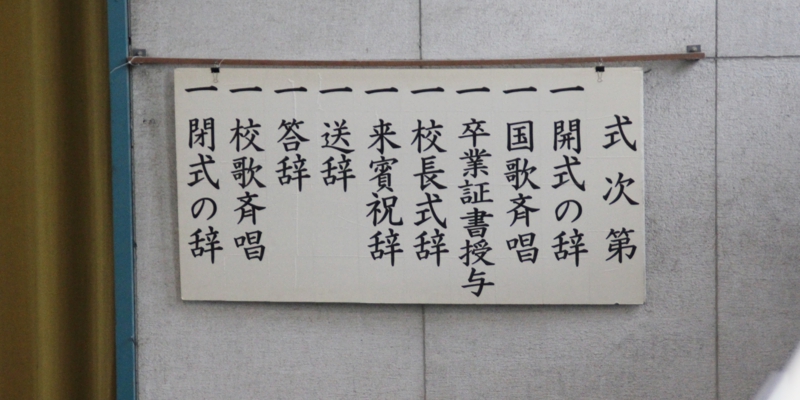 式次第
一 開式の辞
一 国歌斉唱
一 卒業証書授与
一 校長式辞
一 来賓祝辞
一 送辞
一 答辞
一 校歌斉唱
一 閉式の辞